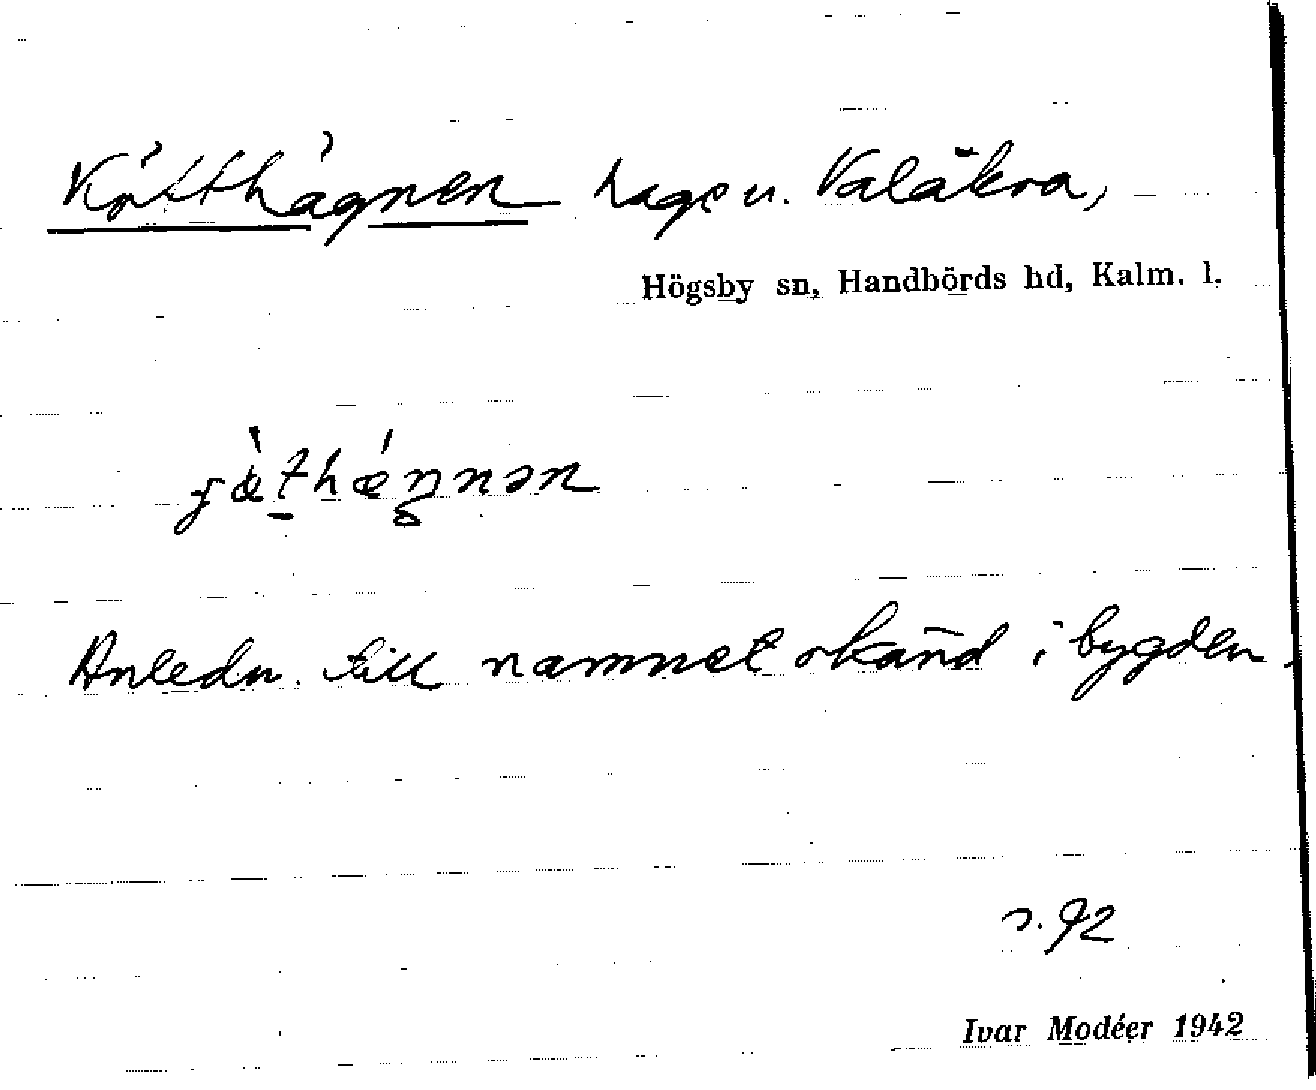 Kötthägnen hage u. Valåkra,
Högsby sn, Handbörds hd, Kalm. l.
Anledn. till namnet okänd i bygden.
s. 92
Ivar Modéer 1942